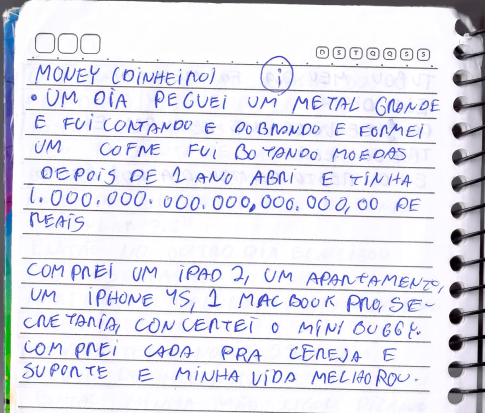 D S T Q Q S S
MONEY (DINHEIRO) i
• UM DIA PEGUEI UM METAL GRANDE
E FUI CONTANDO E DOBRANDO E FORMEI
UM COFRE FUI BOTANDO MOEDAS
DEPOIS DE 1 ANO ABRI E TINHA
1.000.000.000.000,000.000,00 DE
REAIS
COMPREI UM IPAD 2, UM APARTAMENTO,
UM IPHONE 4S, 1 MACBOOK PRO, SE-
CRETARIA, CONCERTEI O MINI BUGGY.
COMPREI CADA PRA CEREJA E
SUPORTE E MINHA VIDA MELHOROU.